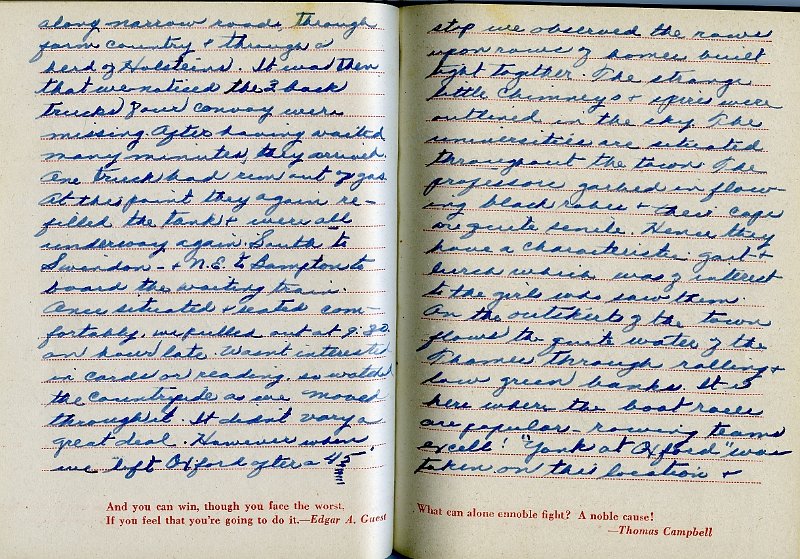 along narrow roads, through
farm country & through a
herd of Holsteins. It was then
that we noticed the 3 back
trucks of our convoy were
missing. After having waited
many minutes, they arrived.
One truck had run out of gas.
At this point they again re-
filled the tank & were all
underway again. South to
Swindon - & N.E. to Bampton to
board the waiting train.
Once situated & seated com-
fortably, we pulled out at 9:30
an hour late. Wasn't interested
in cards or reading, so watched
the countryside as we moved
through it. It didn't vary a
great deal. However when
we left Oxford after a 45
And you can win, though you face the worst,
If you feel that you're going to do it.—Edgar A. Guest
stop we observed the rows
upon rows of homes built
tight together. The strange
little chimneys & spires were
outlined in the sky. The
universities are situated
throughout the town. The
professors garbed in flow-
ing black robes & their caps
are quite senile. Hence they
have a characteristic gait &
lurch which was of interest
to the girls who saw them.
On the outskirts of the town
flows the quiet water of the
Thames through rolling &
low green banks. It is
here where the boat races
are popular - rowing teams
excell! "Yank at Oxford" was
taken on this location &
What can alone ennoble fight? A noble cause!
—Thomas Campbell